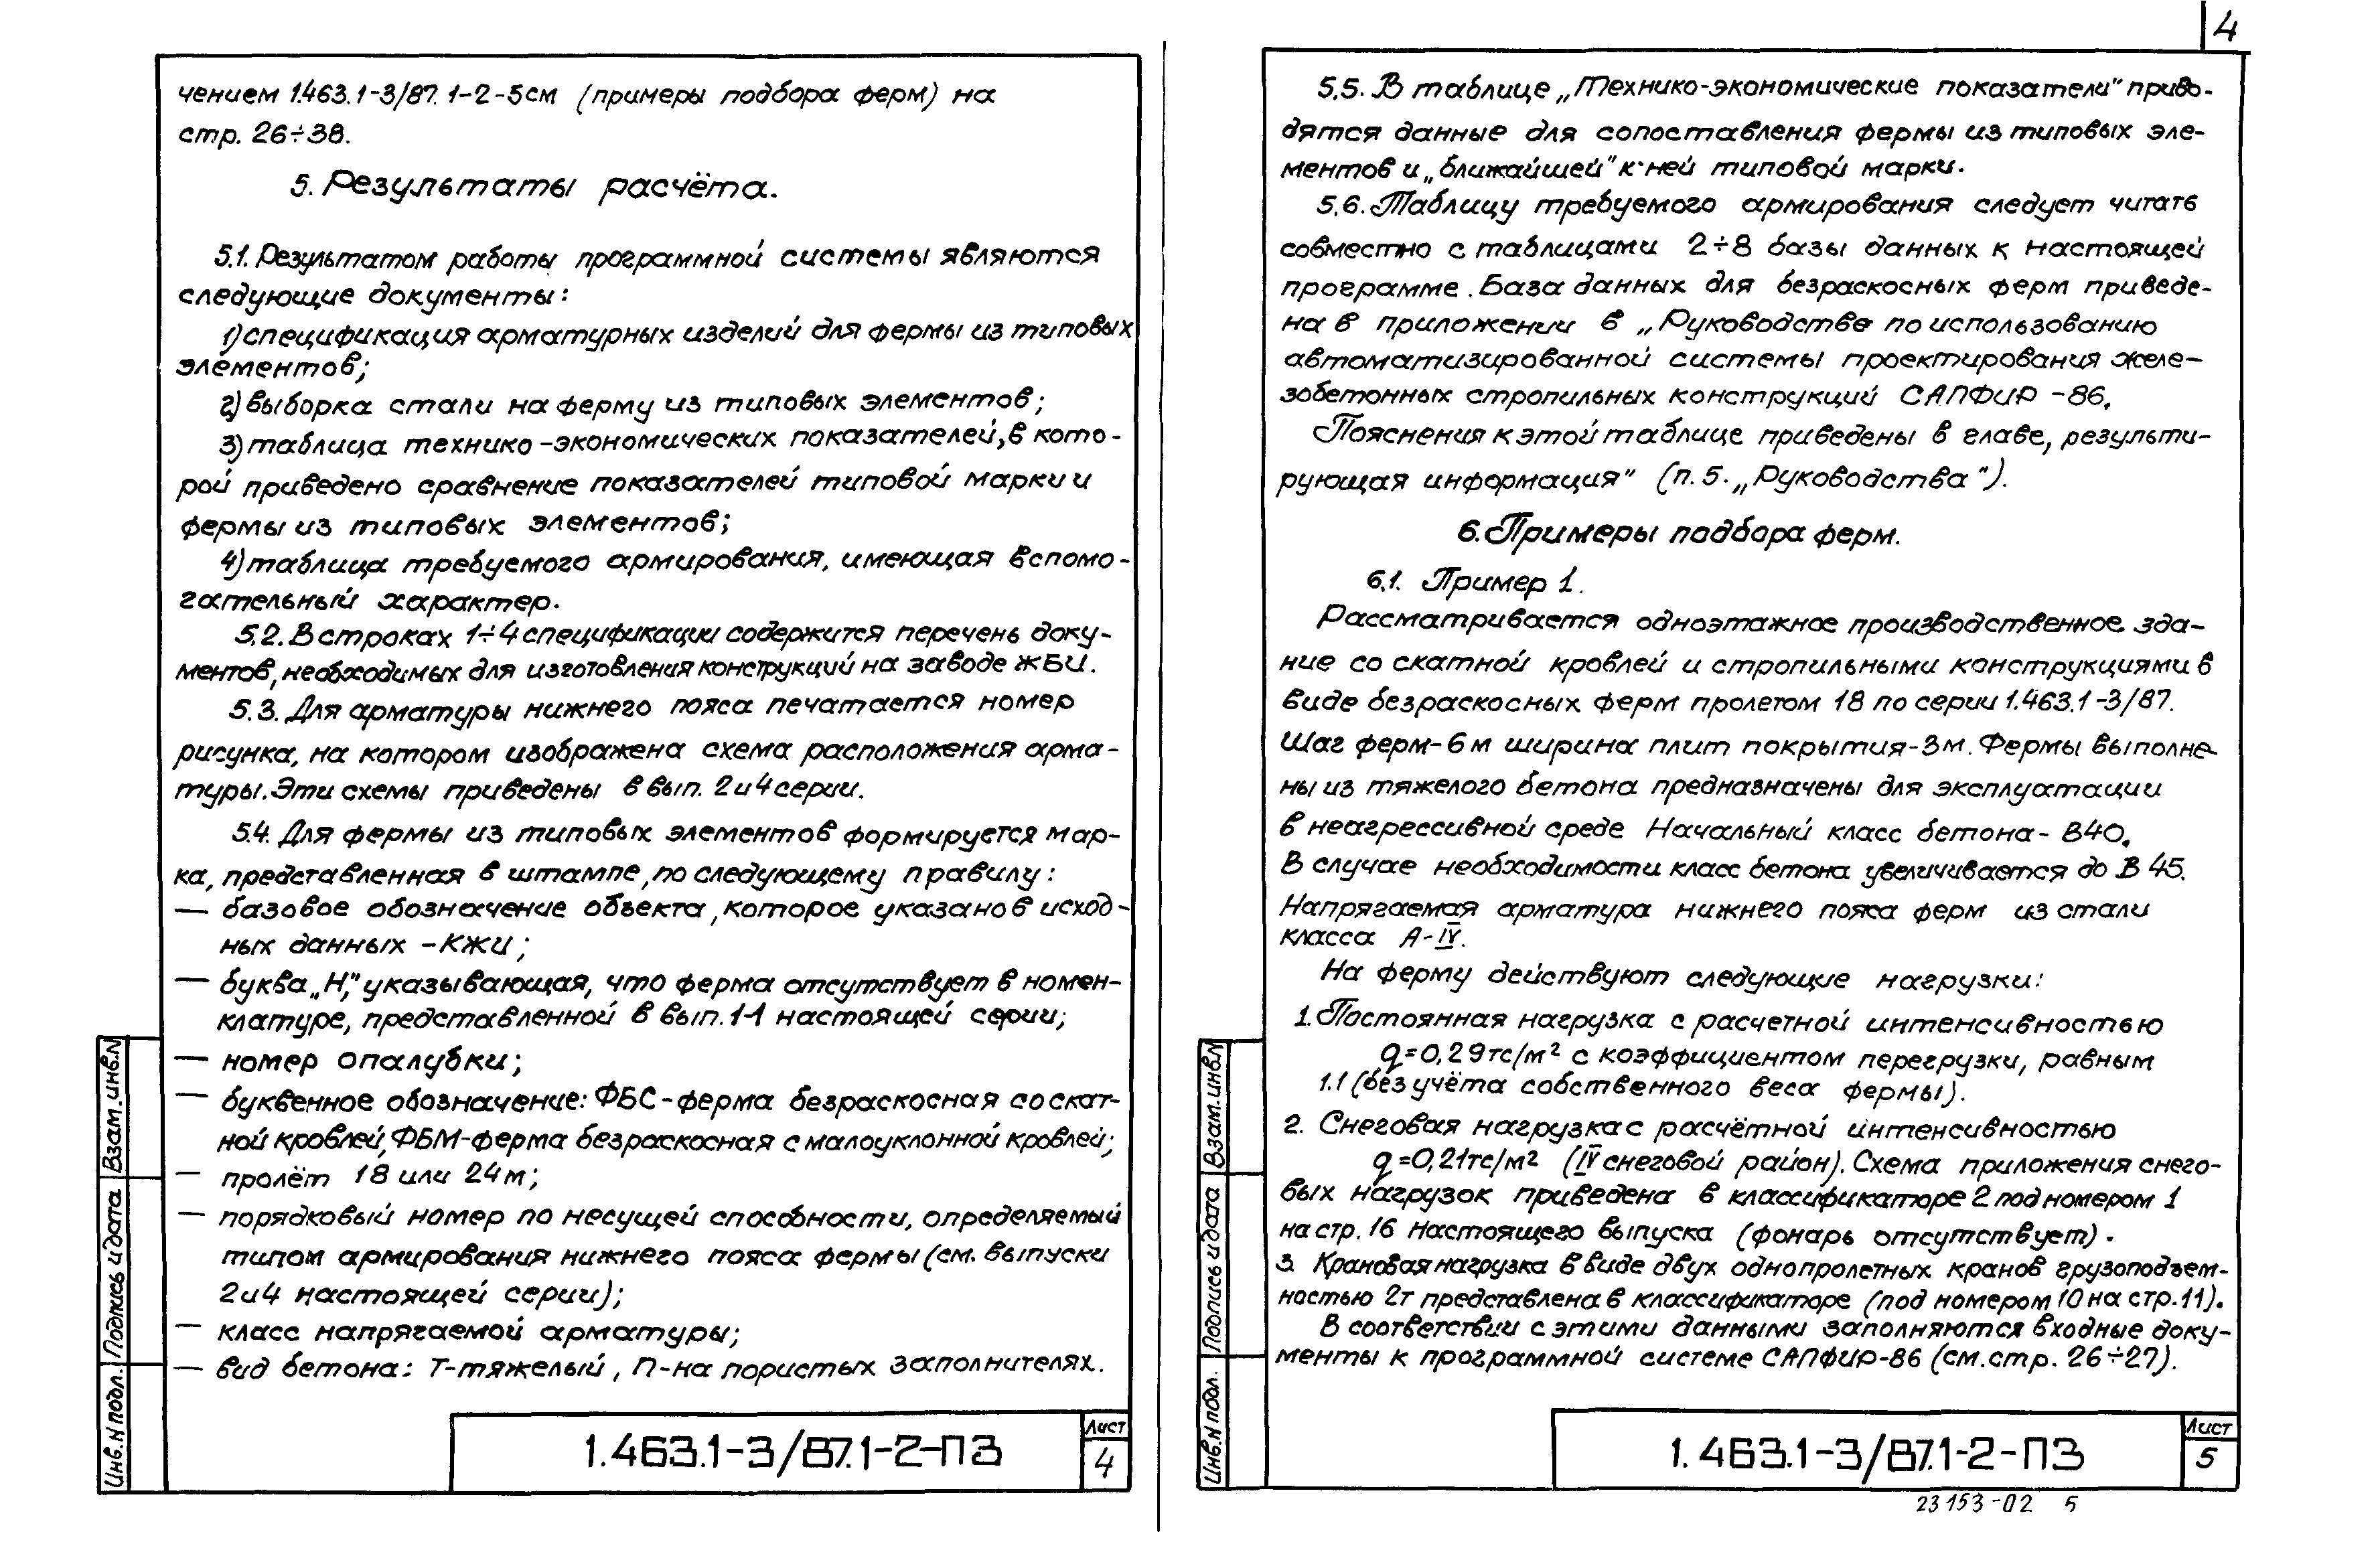 чением 1.463.1-3/87.1-2-5см (примеры подбора ферм) на
стр. 26÷38.
5. Результаты расчёта.
5.1. Результатом работы программной системы являются
следующие документы:
1) спецификация арматурных изделий для фермы из типовых
элементов;
2) выборка стали на ферму из типовых элементов;
3) таблица технико-экономических показателей, в кото-
рой приведено сравнение показателей типовой марки и
фермы из типовых элементов;
4) таблица требуемого армирования, имеющая вспомо-
гательный характер.
5.2. В строках 1÷4 спецификации содержится перечень доку-
ментов, необходимых для изготовления конструкций на заводе ЖБИ.
5.3. Для арматуры нижнего пояса печатается номер
рисунка, на котором изображена схема расположения арма-
туры. Эти схемы приведены в вып. 2 и 4 серии.
5.4. Для фермы из типовых элементов формируется мар-
ка, представленная в штампе, по следующему правилу:
— базовое обозначение объекта, которое указано в исход-
ных данных - КЖИ;
— буква „Н", указывающая, что ферма отсутствует в номен-
клатуре, представленной в вып. 1-1 настоящей серии;
— номер опалубки;
— буквенное обозначение: ФБС-ферма безраскосная со скат-
ной кровлей, ФБМ-ферма безраскосная с малоуклонной кровлей;
— пролёт 18 или 24 м;
— порядковый номер по несущей способности, определяемый
типом армирования нижнего пояса фермы (см. выпуски
2 и 4 настоящей серии);
— класс напрягаемой арматуры;
— вид бетона: Т-тяжелый, П-на пористых заполнителях.
Взам. инв. N
Подпись и дата
Инв. N подл.
1.463.1-3/87.1-2-ПЗ
Лист
4
4
5.5. В таблице „Технико-экономические показатели" приво-
дятся данные для сопоставления фермы из типовых эле-
ментов и „ближайшей" к ней типовой марки.
5.6. Таблицу требуемого армирования следует читать
совместно с таблицами 2÷8 базы данных к настоящей
программе. База данных для безраскосных ферм приведе-
на в приложении в „Руководстве по использованию
автоматизированной системы проектирования желе-
зобетонных стропильных конструкций САПФИР-86.
Пояснения к этой таблице приведены в главе „результи-
рующая информация" (п. 5. „Руководства").
6. Примеры подбора ферм.
6.1. Пример 1.
Рассматривается одноэтажное производственное зда-
ние со скатной кровлей и стропильными конструкциями в
виде безраскосных ферм пролетом 18 по серии 1.463.1-3/87.
Шаг ферм-6м ширина плит покрытия-3м. Фермы выполне-
ны из тяжелого бетона предназначены для эксплуатации
в неагрессивной среде Начальный класс бетона - В40.
В случае необходимости класс бетона увеличивается до В 45.
Напрягаемая арматура нижнего пояса ферм из стали
класса А-IV.
На ферму действуют следующие нагрузки:
1. Постоянная нагрузка с расчетной интенсивностью
q=0,29тс/м² с коэффициентом перегрузки, равным
1.1 (без учёта собственного веса фермы).
2. Снеговая нагрузка с расчётной интенсивностью
q=0,21тс/м² (IV снеговой район). Схема приложения снего-
вых нагрузок приведена в классификаторе 2 под номером 1
на стр. 16 настоящего выпуска (фонарь отсутствует).
3. Крановая нагрузка в виде двух однопролетных кранов грузоподъем-
ностью 2т представлена в классификаторе (под номером 10 на стр. 11).
В соответствии с этими данными заполняются входные доку-
менты к программной системе САПФИР-86 (см. стр. 26÷27).
Взам. инв. N
Подпись и дата
Инв. N подл.
1.463.1-3/87.1-2-ПЗ
Лист
5
23153-02 5